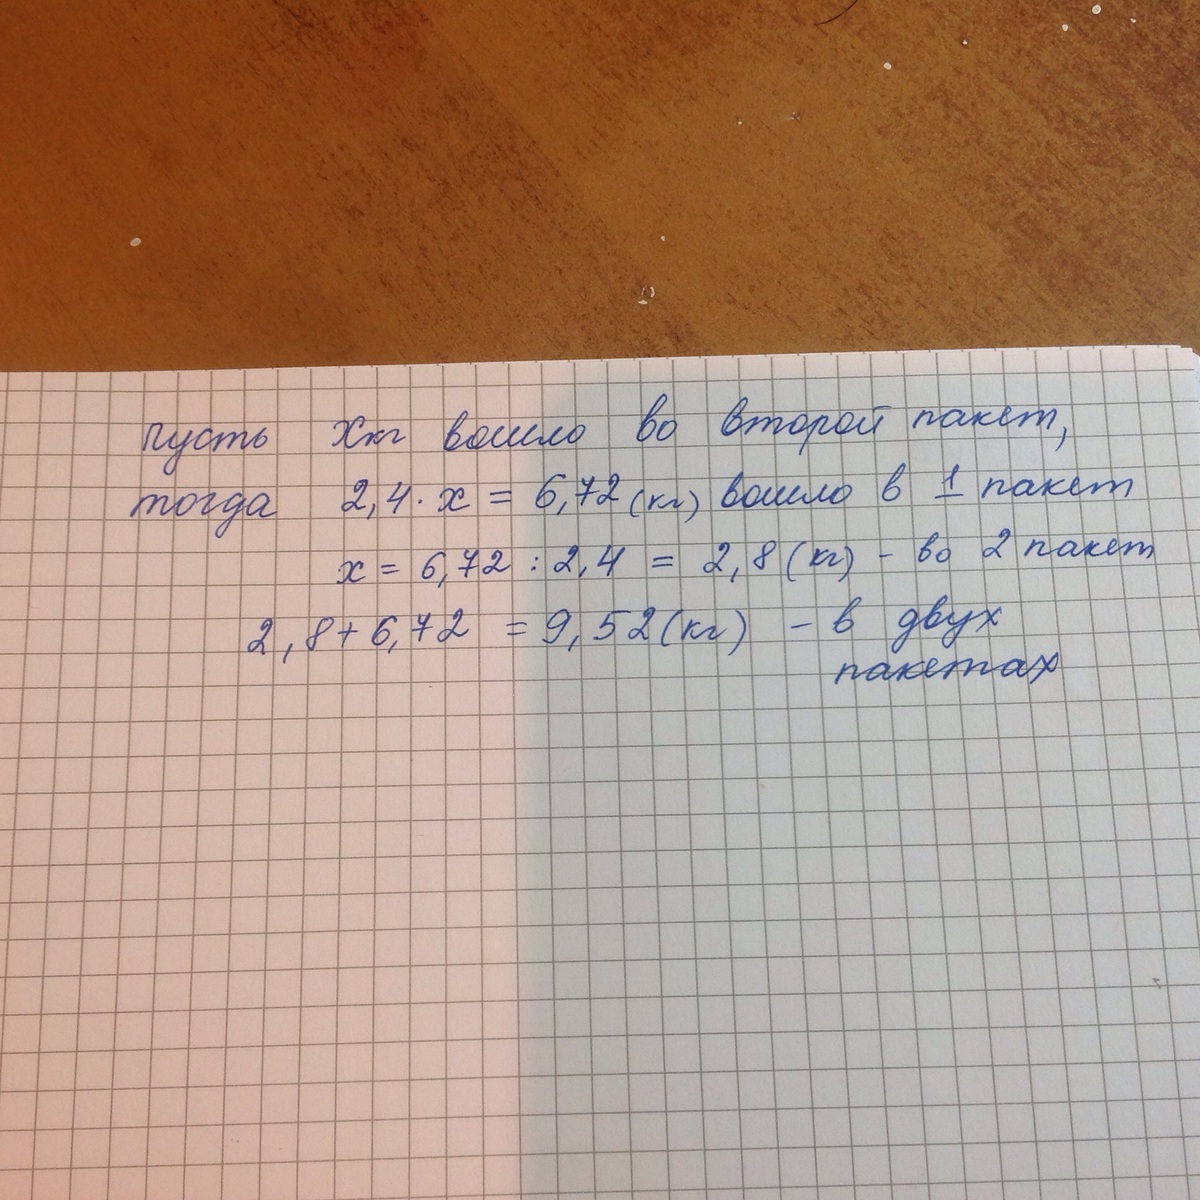 пусть Xкг вошло во второй пакет,
тогда 2,4 · x = 6,72 (кг) вошло в 1 пакет
x = 6,72 : 2,4 = 2,8 (кг) - во 2 пакет
2,8 + 6,72 = 9,52 (кг) - в двух
пакетах